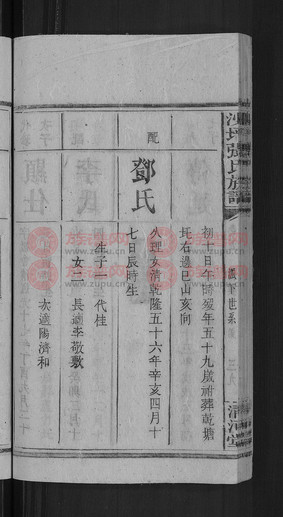 沙坪張氏族譜
清河堂
初十日午時歿年五十九歲祔葬乾塘
坨右邊巳山亥向
配
鄧氏
久理女清乾隆五十六年辛亥四月十
七日辰時生
生子一 代桂
女二 長適李敬敷
次適陽濟和
族譜网
www.zupu.cn